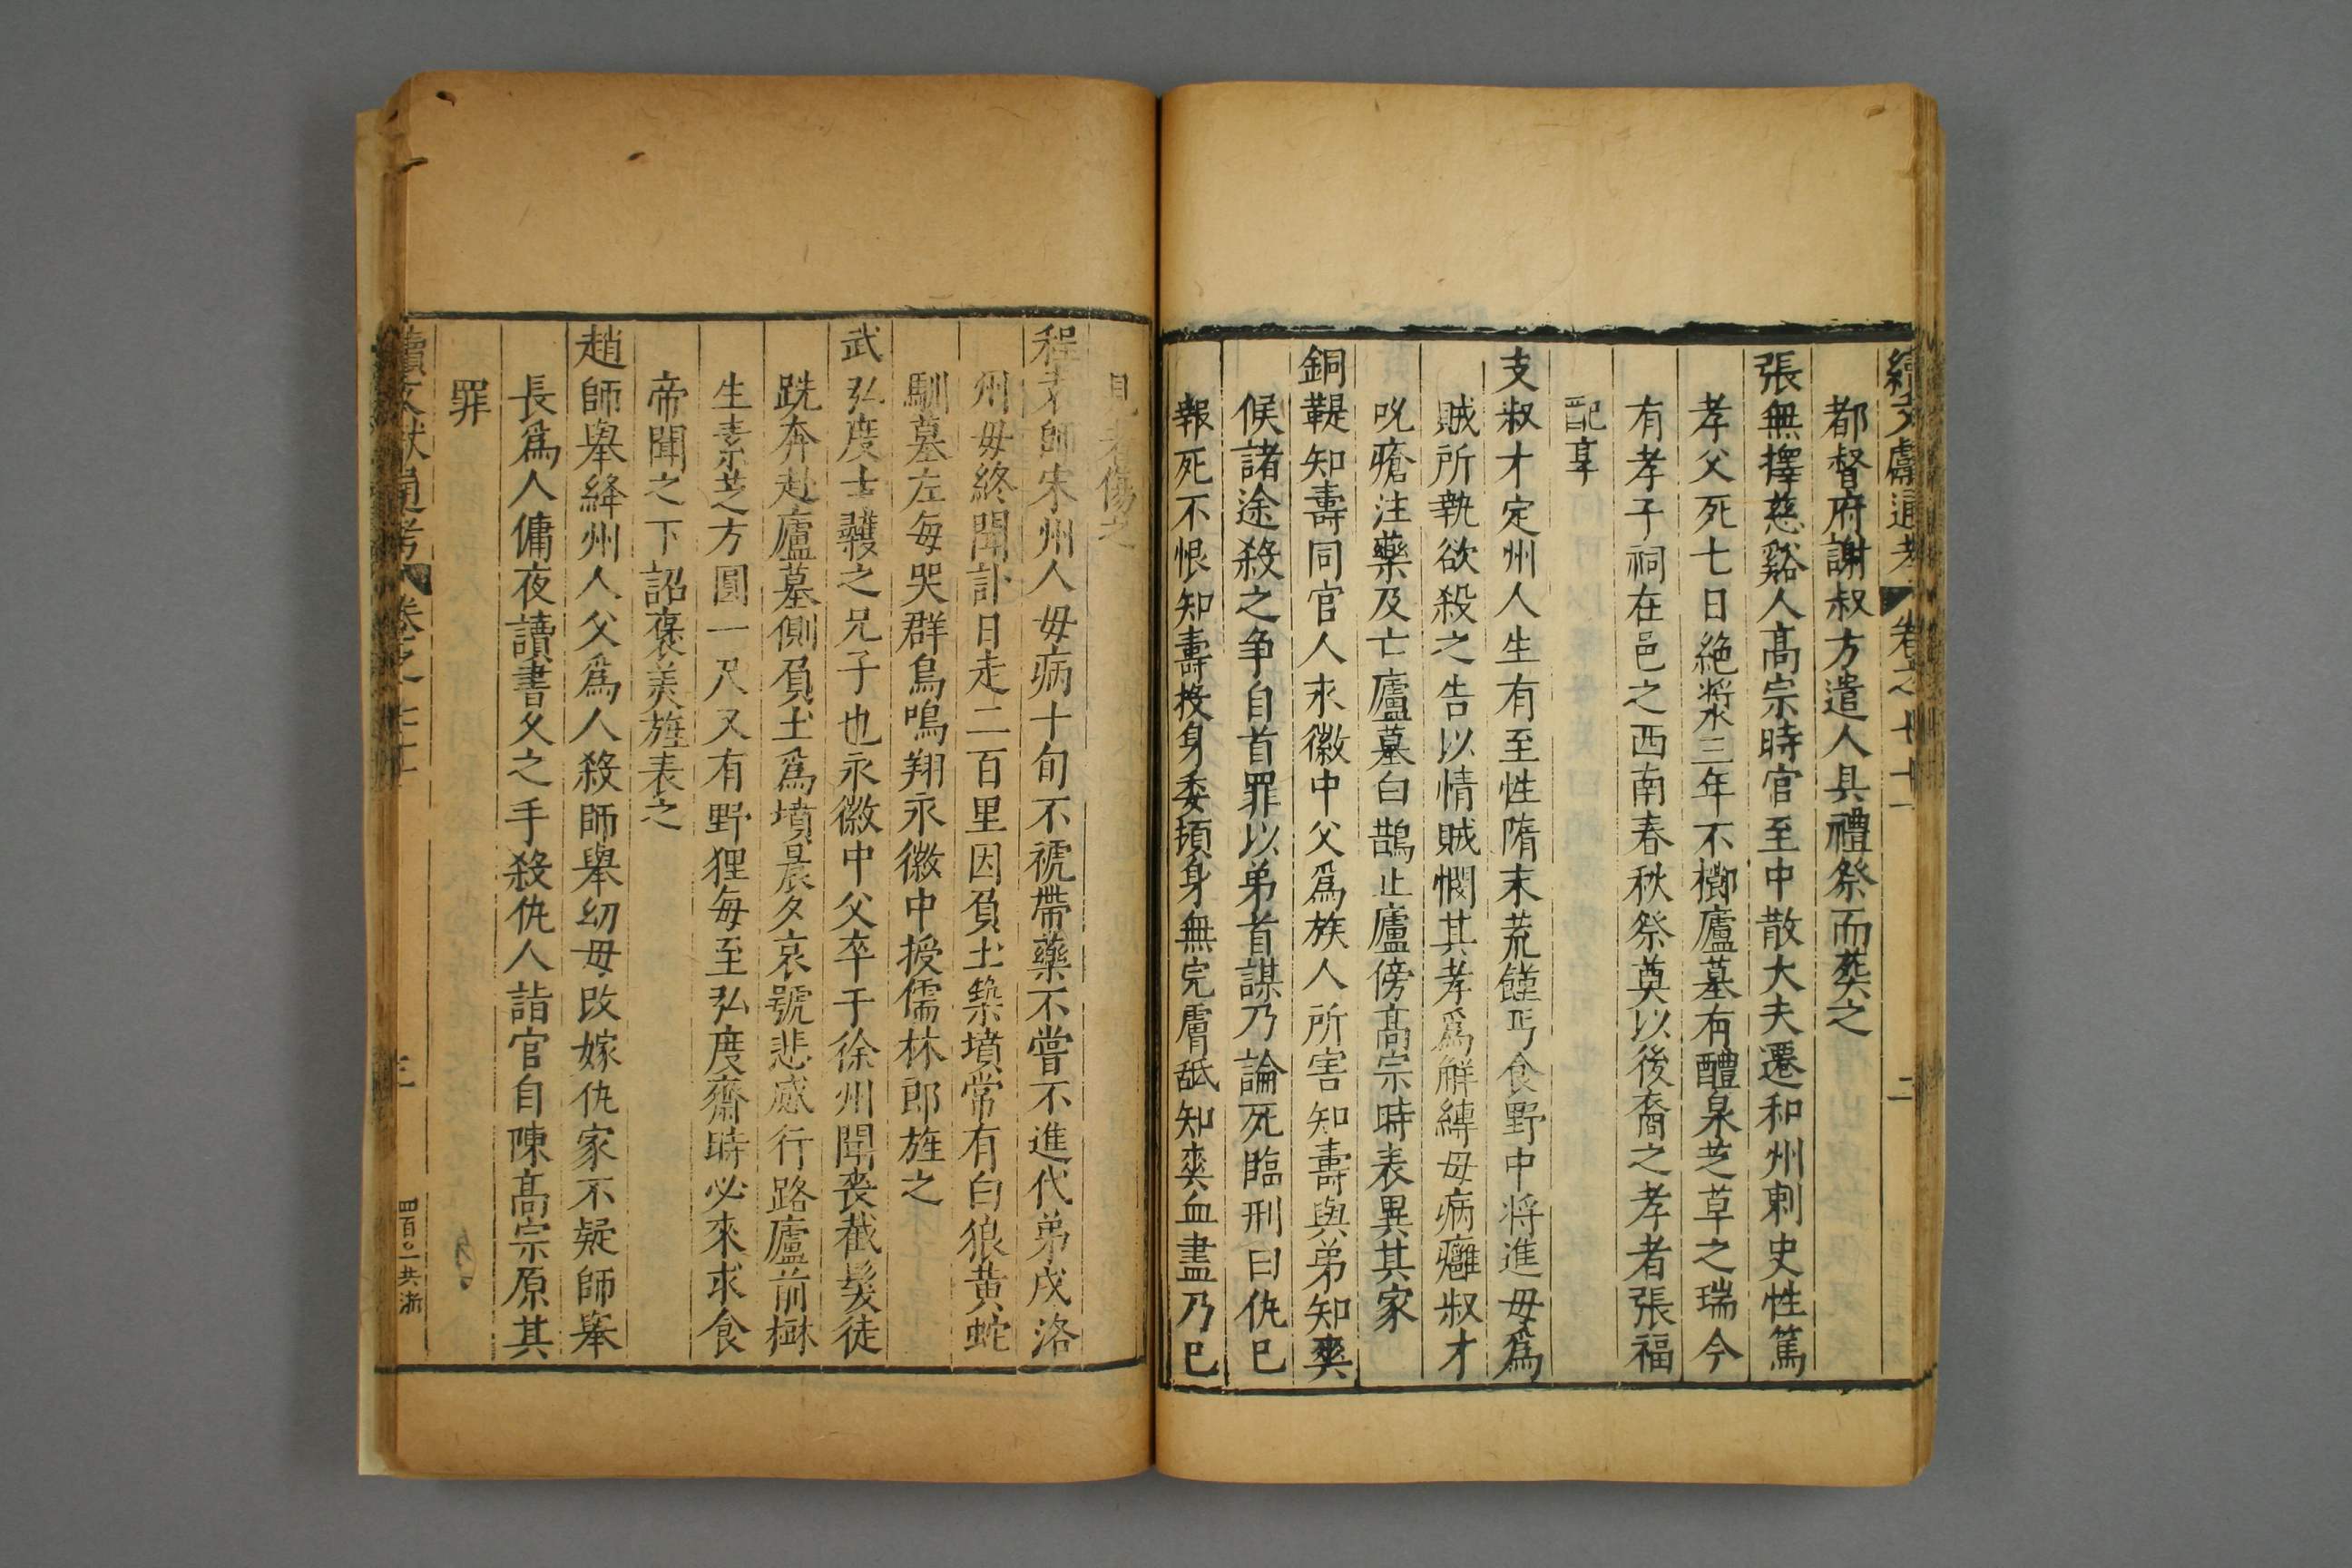 續文獻通考 卷之七十一 二
都督府謝叔方遣人具禮祭而葬之
張無擇慈谿人高宗時官至中散大夫遷和州刺史性篤
孝父死七日絶漿三年不櫛廬墓有醴泉芝草之瑞今
有孝子祠在邑之西南春秋祭奠以後裔之孝者張福
配享
支叔才定州人生有至性隋末荒饉丐食野中将進母爲
賊所執欲殺之告以情賊憫其孝爲解縛母病癰叔才
吮瘡注藥及亡廬墓白鵲止廬傍高宗時表異其家
銅鞮知壽同官人末徽中父爲族人所害知壽與弟知奭
候諸途殺之争自首罪以弟首謀乃論死臨刑曰仇已
報死不恨知壽投身委頓身無完膚舐知奭血盡乃已
見者傷之
程 師宋州人母病十旬不褫帶藥不嘗不進代弟戍洛
州母終聞訃日走二百里因負土築墳常有白狼黄蛇
馴墓左每哭群鳥鳴翔永徽中授儒林郎旌之
武弘度士彠之兄子也永徽中父卒于徐州聞喪截髮徒
跣奔赴廬墓側負土爲墳晨夕哀號悲感行路廬前楙
生素芝方圓一尺又有野狸每至弘度齋時必來求食
帝聞之下詔褒美旌表之
趙師舉絳州人父爲人殺師舉幼母改嫁仇家不疑師舉
長爲人傭夜讀書父之手殺仇人詣官自陳高宗原其
罪
續文獻通考 卷之七十 三 四百 共浙